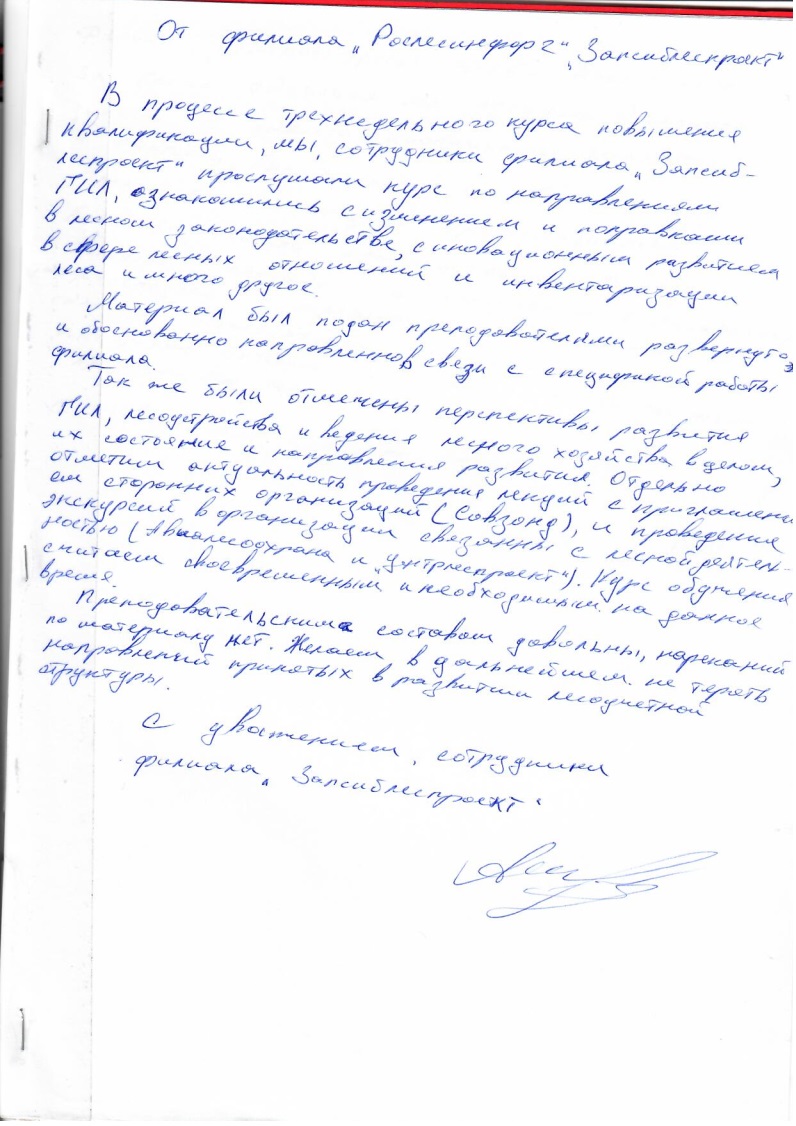 От филиала „Рослесинфорг“ „Запсиблеспроект“
В процессе трехнедельного курса повышения
квалификации, мы, сотрудники филиала „Запсиб-
леспроект“ прослушали курс по направлениям
ГИЛ, ознакомились с изменением и поправками
в лесном законодательстве, с иновационным развитием
в сфере лесных отношений и инвентаризации
леса и много другое.
Материал был подан преподавателями развернуто
и обоснованно направленно в связи с спецификой работы
филиала.
Так же были отмечены перспективы развития
ГИЛ, лесоустройства и ведения лесного хозяйства в целом,
их состояние и направления развития. Отдельно
отметим актуальность проведения лекций с приглашени
ем сторонних организаций (Совзонд), и проведения
экскурсий в организации связанны с лесной деятель-
ностью (Авиалесоохрана и „Центрлеспроект“). Курс обучения
считаем своевременным и необходимым на данное
время.
Преподавательским составом довольны, нареканий
по материалу нет. Желаем в дальнейшем не терять
направлений принятых в развитии лесоучетной
структуры.
С уважением, сотрудники
филиала „Запсиблеспроект“